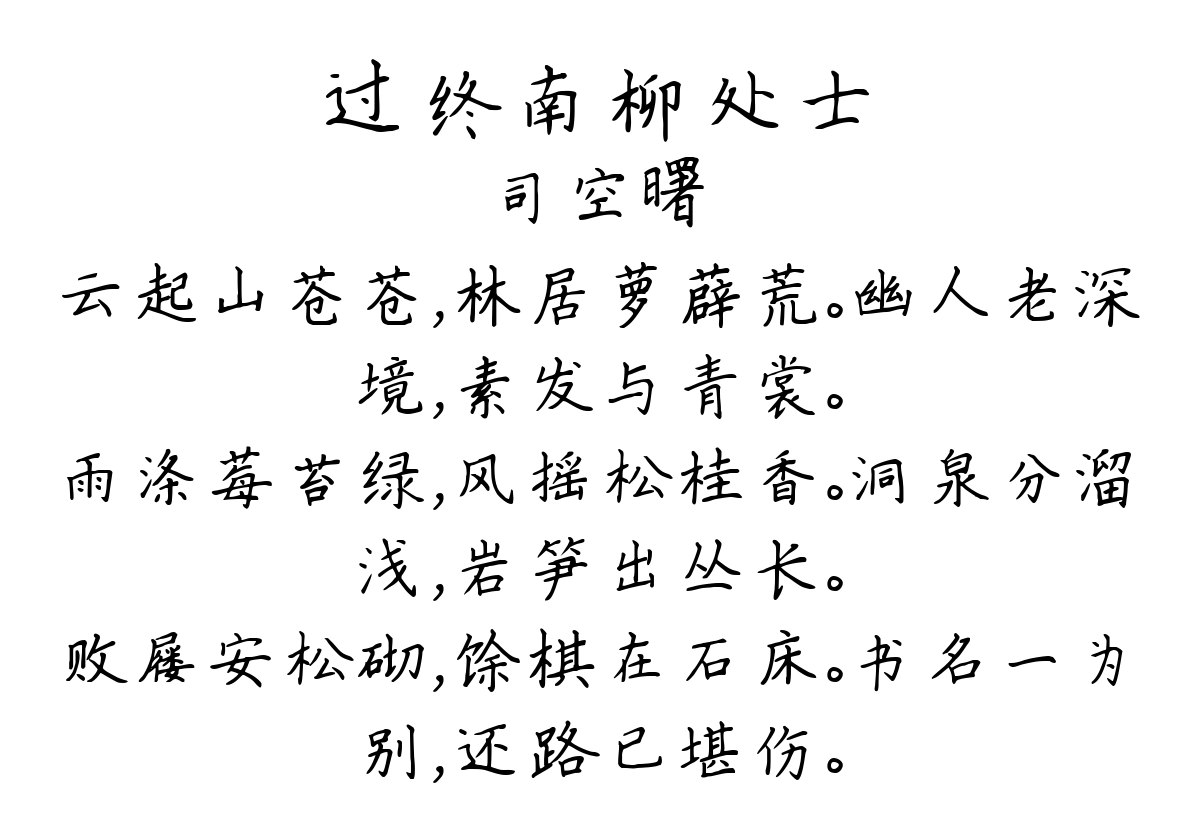 过终南柳处士
司空曙
云起山苍苍,林居萝薜荒。幽人老深
境,素发与青裳。
雨涤莓苔绿,风摇松桂香。洞泉分溜
浅,岩笋出丛长。
败屦安松砌,馀棋在石床。书名一为
别,还路已堪伤。